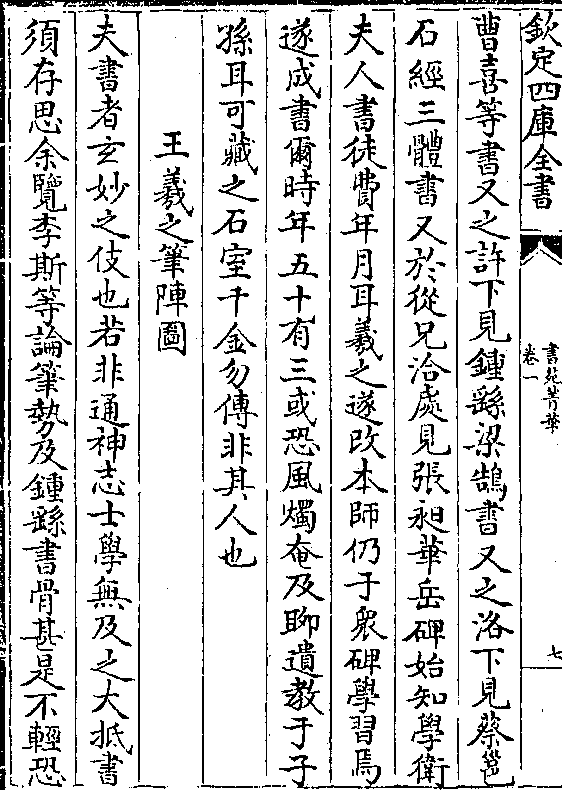 欽定四庫全書
書苑菁華
卷一
七
曹喜等書又之許下見鍾繇梁鵠書又之洛下見蔡邕
石經三體書又於從兄洽處見張昶華岳碑始知學衛
夫人書徒費年月耳羲之遂改本師仍于衆碑學習焉
遂成書爾時年五十有三或恐風燭奄及聊遺教于子
孫耳可藏之石室千金勿傳非其人也
王羲之筆陣圖
夫書者玄妙之伎也若非通神志士學無及之大抵書
須存思余覽李斯等論筆勢及鍾繇書骨甚是不輕恐